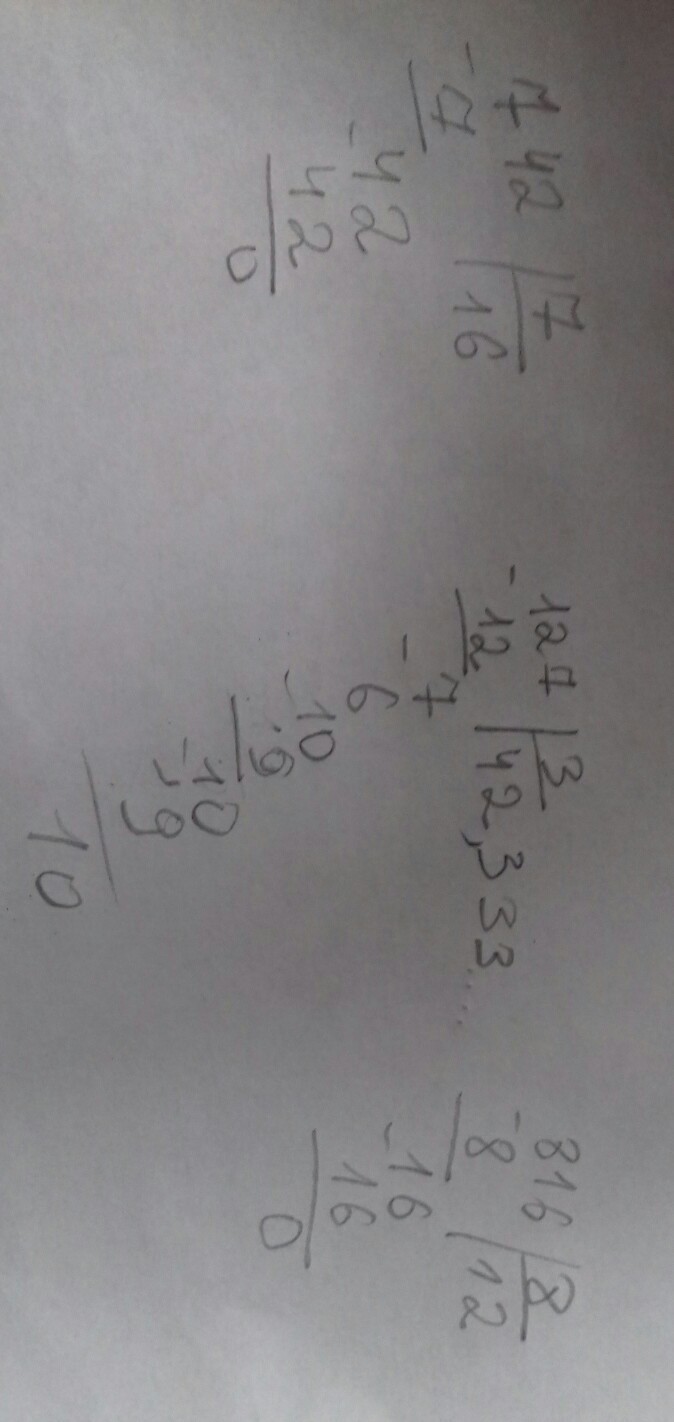 742 | 7
- 7 16
- 42
42
0
127 | 3
- 12 42,333....
- 7
6
- 10
9
- 10
9
10
816 | 8
- 8 12
- 16
16
0